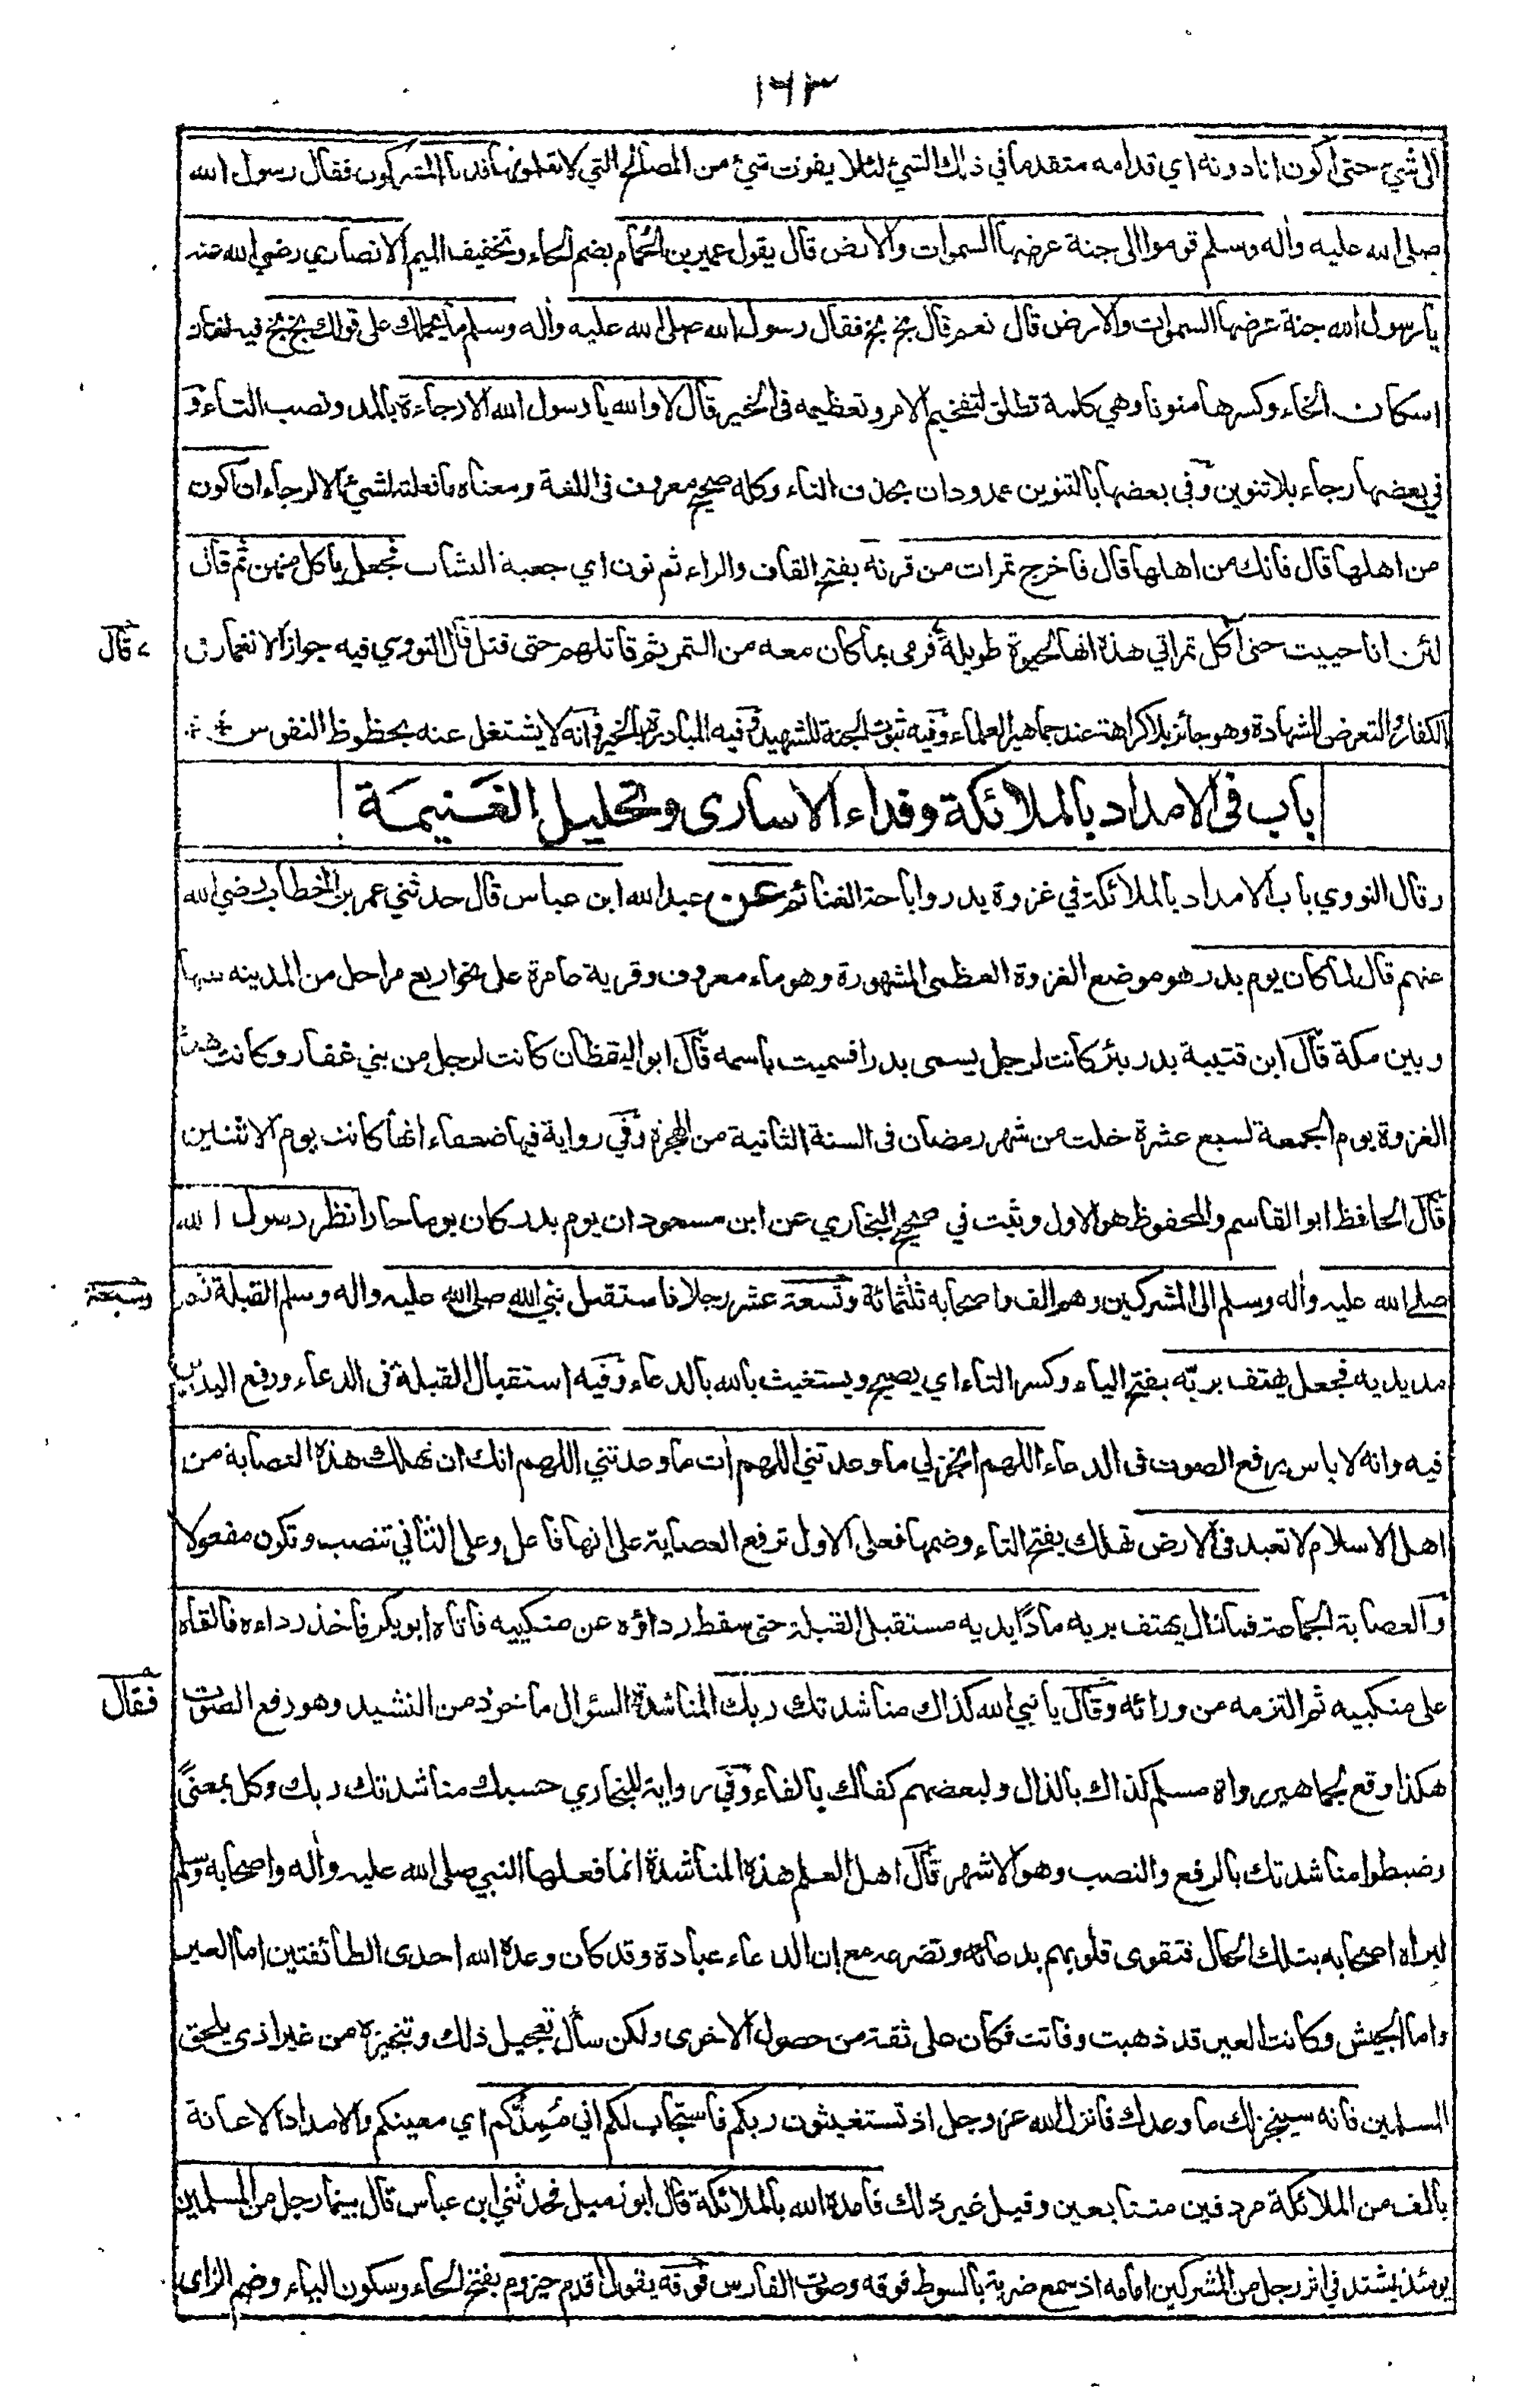 ١٦٣
الى شيء حتى اكون انا دونه اي قدامه متقدما في ذلك الشيء لئلا يفوت شيء من المصالح التي لا تعلمونها فدنا المشركون فقال رسول الله
صلى الله عليه واٰله وسلم قوموا الى جنة عرضها السموات والارض قال يقول عمير بن الحُمام بضم الحاء وتخفيف الميم الانصاري رضي الله عنه
يا رسول الله جنة عرضها السموات والارض قال نعم قال بخ بخ فقال رسول الله صلى الله عليه واٰله وسلم ما يحملك على قولك بخ بخ فيه لغتان
اسكان الخاء وكسرها منونا وهي كلمة تطلق لتفخيم الامر وتعظيمه في الخير قال لا والله يا رسول الله الا رجاءة بالمد ونصب التاء و
في بعضها رجاء بلا تنوين وفي بعضها بالتنوين ممدودان بحذف التاء وكله صحيح معروف في اللغة ومعناه ما فعلته لشيء الا لرجاء ان اكون
من اهلها قال فانك من اهلها قال فاخرج تمرات من قرنه بفتح القاف والراء ثم نون اي جعبة النشاب فجعل ياكل منهن ثم قال
لئن انا حييت حتى آكل تمراتي هذه انها لحيوة طويلة فرمى بما كان معه من التمر ثم قاتلهم حتى قتل قال النووي فيه جواز الانغمار في
قال
الكفار والتعرض للشهادة وهو جائز بلا كراهة عند جماهير العلماء وفيه ثبوت الجنة للشهيد وفيه المبادرة بالخير وانه لا يشتغل عنه بحظوظ النفوس
باب في الامداد بالملائكة وفداء الاسارى وتحليل الغنيمة
وقال النووي باب الامداد بالملائكة في غزوة بدر واباحة الغنائم عن عبد الله ابن عباس قال حدثني عمر بن الخطاب رضي الله
عنهم قال لما كان يوم بدر هو موضع الغزوة العظمى المشهورة وهو ماء معروف وقرية عامرة على نحو اربع مراحل من المدينه بينها
وبين مكة قال ابن قتيبة بدر بئر كانت لرجل يسمى بدرا فسميت باسمه قال ابو اليقظان كانت لرجل من بني غفار وكانت هذه
الغزوة يوم الجمعة لسبع عشرة خلت من شهر رمضان في السنة الثانية من الهجرة وفي رواية فيها ضعفاء انها كانت يوم الاثنين
قال الحافظ ابو القاسم والمحفوظ هو الاول وثبت في صحيح البخاري عن ابن مسعود ان يوم بدر كان يوما حارا نظر رسول الله
صلى الله عليه واٰله وسلم الى المشركين وهم الف واصحابه ثلثمائة وتسعة عشر رجلا فاستقبل نبي الله صلى الله عليه واله وسلم القبلة ثم
وسبعة
مد يديه فجعل يهتف بربّه بفتح الياء وكسر التاء اي يصيح ويستغيث بالله بالدعاء وفيه استقبال القبلة في الدعاء ورفع اليدين
فيه وانه لا باس برفع الصوت في الدعاء اللهم انجز لي ما وعدتني اللهم اٰت ما وعدتني اللهم انك ان تهلك هذه العصابة من
اهل الاسلام لا تعبد في الارض تهلك بفتح التاء وضمها فعلى الاول ترفع العصابة على انها فاعل وعلى الثاني تنصب وتكون مفعولا
والعصابة الجماعة فما زال يهتف بربه مادًا يديه مستقبل القبلة حتى سقط رداؤه عن منكبيه فاتاه ابو بكر فاخذ رداءه فالقاه
على منكبيه ثم التزمه من ورائه وقال يا نبي الله كذاك مناشدتك ربك المناشدة السؤال ماخوذ من النشيد وهو رفع الصوت
فقال
هكذا وقع لجماهير رواة مسلم كذاك بالذال ولبعضهم كفاك بالفاء وفي رواية للبخاري حسبك مناشدتك ربك وكل بمعنًى
وضبطوا مناشدتك بالرفع والنصب وهو الاشهر قال اهل العلم هذه المناشدة انما فعلها النبي صلى الله عليه واٰله واصحابه وسلم
ليراه اصحابه بتلك الحال فتقوى قلوبهم بدعائه وتضرعه مع ان الدعاء عبادة وقد كان وعده الله احدى الطائفتين اما العير
واما الجيش وكانت العير قد ذهبت وفاتت فكان على ثقة من حصول الاخرى ولكن سأل تعجيل ذلك وتنجيزه من غير اذى يلحق
المسلمين فانه سينجز لك ما وعدك فانزل الله عز وجل اذ تستغيثون ربكم فاستجاب لكم اني مُمِدُّكم اي معينكم والامداد الاعانة
بالف من الملائكة مردفين متتابعين وقيل غير ذلك فامده الله بالملائكة قال ابو زميل فحدثني ابن عباس قال بينما رجل من المسلمين
يومئذ يشتد في اثر رجل من المشركين امامه اذ سمع ضربة بالسوط فوقه وصوت الفارس فوقه يقول اقدم حيزوم بفتح الحاء وسكون الياء وضم الزاى